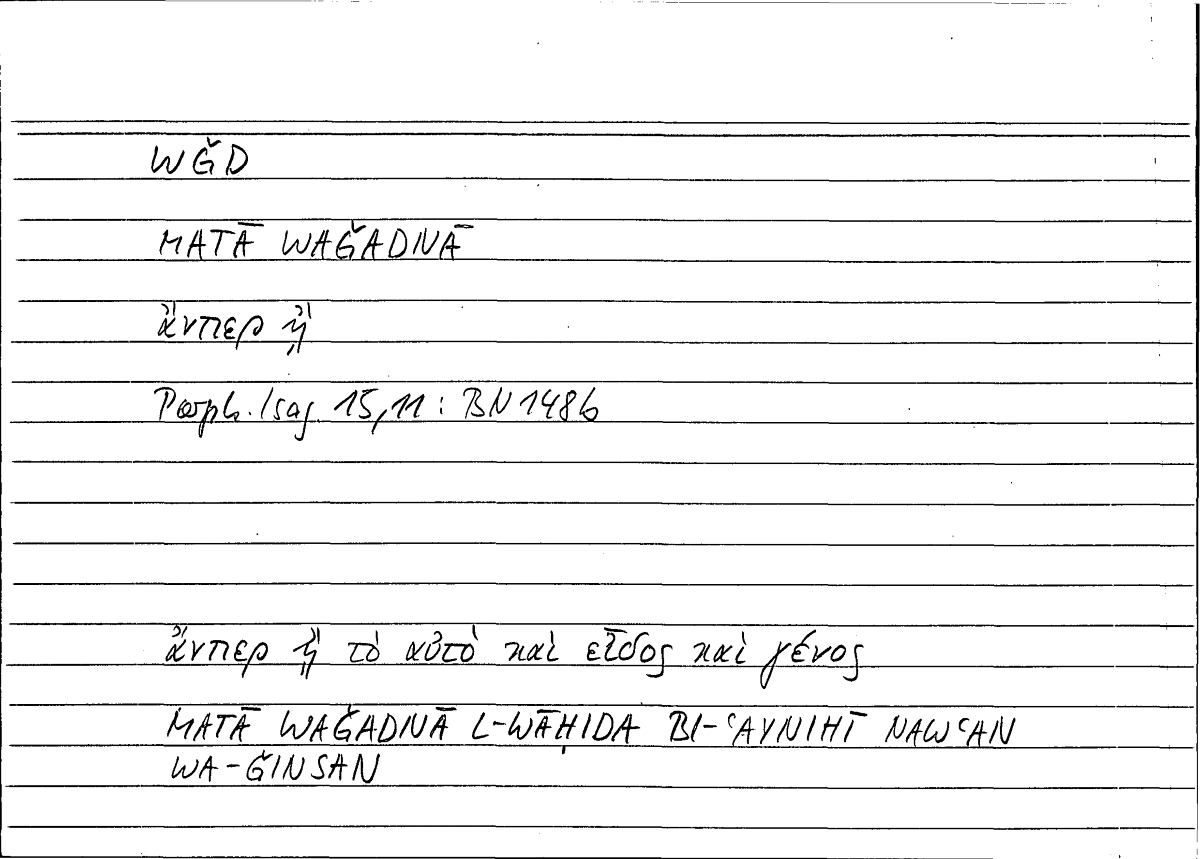 WǦD
MATĀ WAǦADNĀ
ἄνπερ ᾖ
Porph. Isag. 15,11 : BN 148b
ἄνπερ ᾖ τὸ αὐτὸ καὶ εἶδος καὶ γένος
MATĀ WAǦADNĀ L-WĀḤIDA BI-ʿAYNIHĪ NAWʿAN
WA-ǦINSAN